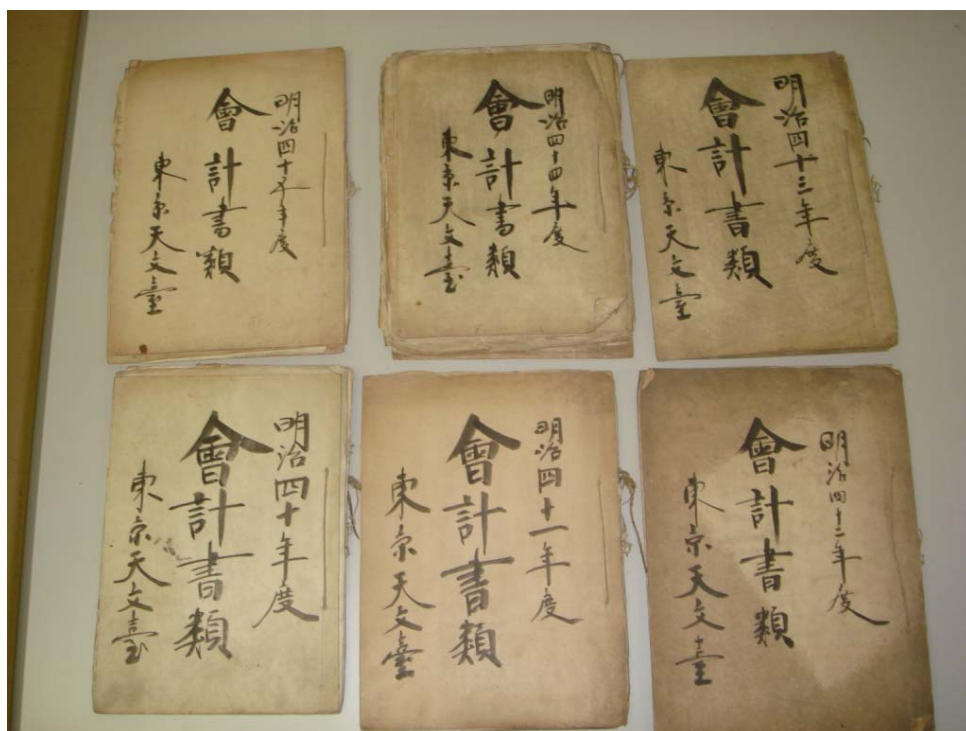 明治四十五年度
會計書類
東京天文臺
明治四十四年度
會計書類
東京天文臺
明治四十三年度
會計書類
東京天文臺
明治四十年度
會計書類
東京天文臺
明治四十一年度
會計書類
東京天文臺
明治四十二年度
會計書類
東京天文臺